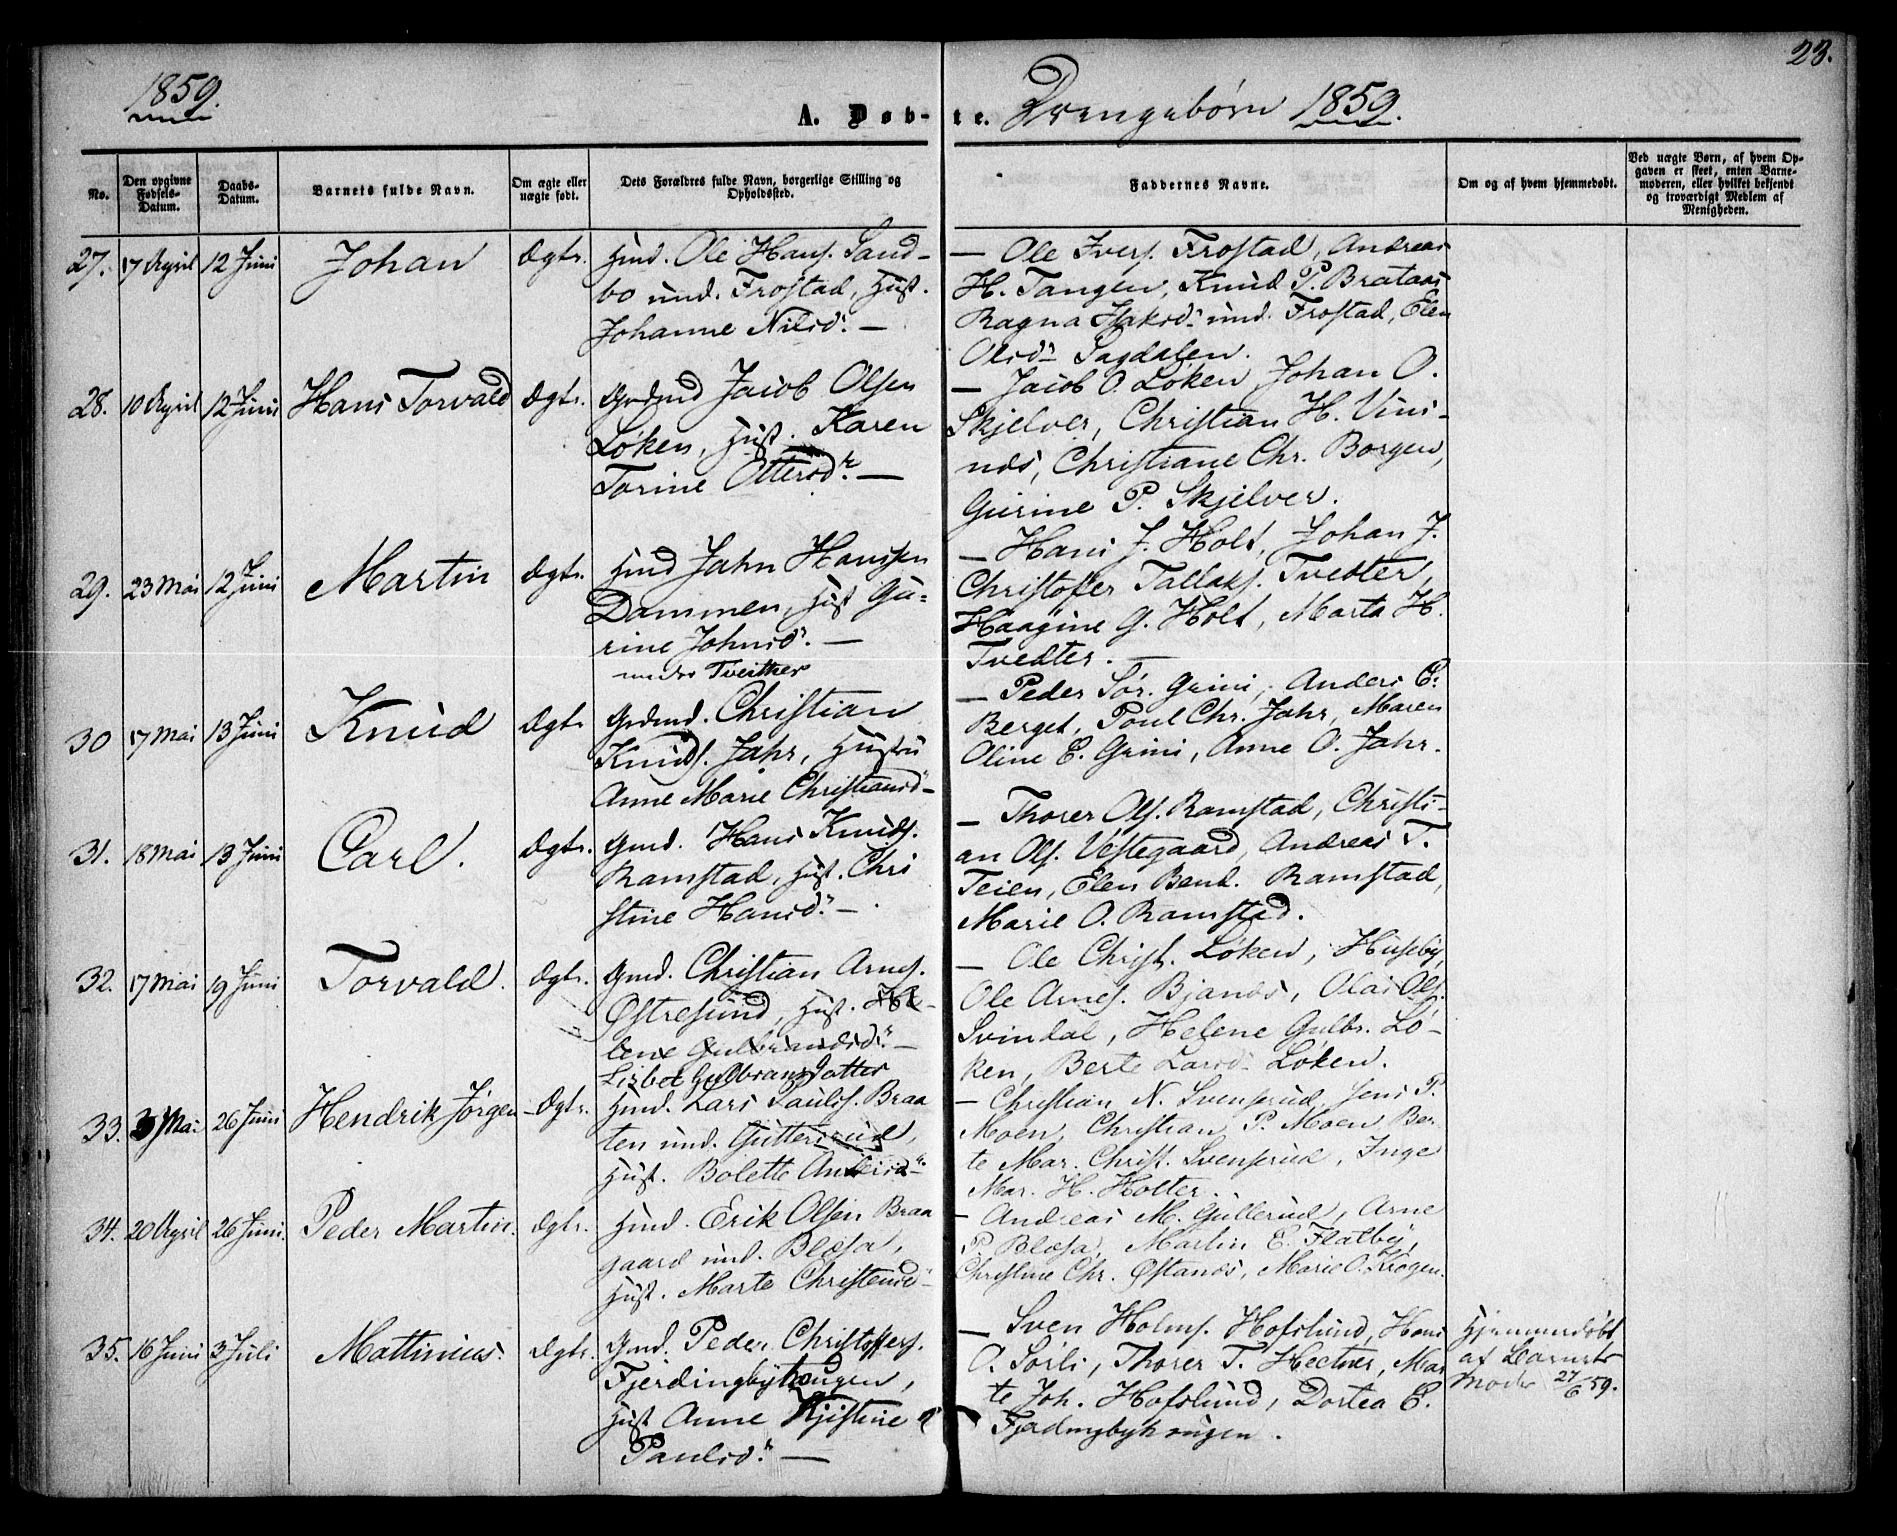 23.
1859.
A. Døb- te. Drengebørn 1859.
No.
Den opgivne Fødsels-Datum.
Daabs-Datum.
Barnets fulde Navn.
Om ægte eller uægte født.
Dets Forældres fulde Navn, borgerlige Stilling og Opholdssted.
Faddernes Navne.
Om og af hvem hjemmedøbt.
Ved uægte Børn, af hvem Opgaven er skeet, enten Barnemoderen, eller hvilket bekjendt og troværdigt Medlem af Menigheden.
27. 17 April 12 Juni Johan Ægte.
Huusmd. Ole Hans. Sand-
bo und. Frostad, Hust.
Johanne Nilsd.r —
— Ole Ivers. Frostad, Andreas
H. Tangen, Knud P. Brataas
Ragna Isaksd.r und. Frostad, Elen
Olsd.r Sagdalen.
28. 10 April 12 Juni Hans Torvald Ægte.
Grdmd Jacob Olsen
Løken, Hust. Karen
Torine Ottersd.r —
— Jacob O. Løken, Johan O.
Skjelver, Christian H. Vins-
nds, Christiane Chr. Borgen,
Gurine P. Skjelver.
29. 23 Mai 12 Juni Martin Ægte.
Hmd Jahn Hanssen
Dammen, Hust Gu-
rine Johnsd.r —
under Tveither
— Hans J. Holt, Johan J.
Christoffer Tallaks. Tvedter,
Haagine G. Holt, Marta H.
Tvedter. —
30 17 Mai 13 Juni Knud Ægte
Grdmd. Christian
Knuds. Jahr, Hustru
Anne Marie Christiansd.r
— Peder Sør. Grini, Anders E.
Berget, Poul Chr. Jahr, Maren
Oline E. Grini, Anne O. Jahr.
31. 18 Mai 13 Juni Carl. Ægte.
Gmd. Hans Knuds.
Ramstad, Hust. Chri
stine Hansd.r —
— Thorer Ols. Ramstad, Christi-
an Ols. Vestegaard, Andreas T.
Teien, Elen Bend. Ramstad,
Marie O. Ramstad.
32. 17 Mai 19 Juni Torvald. Ægte.
Gmd. Christian Arnes.
Østresund, Hust. He-
lene Gulbrandsd.r —
Lisbet Gulbransdatter
— Ole Christ. Løken, Huseby,
Ole Arnes. Bjands, Olai Ols.
Svindal, Helene Gulbr. Lø-
ken, Berte Larsd. Løken.
33. 3 Mai 26 Juni Hendrik Jørgen Ægte.
Hmd. Lars Paulss. Braa
ten und. Guttersrud,
Hust. Bolette Andersd.r
— Christian N. Svensrud, Jens P.
Moen, Christian P. Moen Ber-
te Mar. Christ. Svensrud, Inge
Mar. H. Holter.
34. 20 April 26 Juni. Peder Martin. Ægte.
Hmd. Erik Olsen Braa
gaard und. Blæsa,
Hust. Marte Christensd.r
— Andreas M. Gullerud, Arne
P. Blæsa, Martin E. Flatby,
Christine Chr. Østands, Marie O. Krogen.
35. 16 Juni 3 Juli Mattinius. Ægte.
Gmd. Peder Christoffers.
Fjerdingbyhaugen,
Hust Anne Kjistine
Paulsd.r —
— Sven Holms. Hofslund, Hans
O. Sørli, Thorer T. Hectner, Mar
te Joh. Hofslund, Dortea E.
Fjerdingbyhaugen.
Hjemmedøbt
af Barnets
Moder 27/6 59.